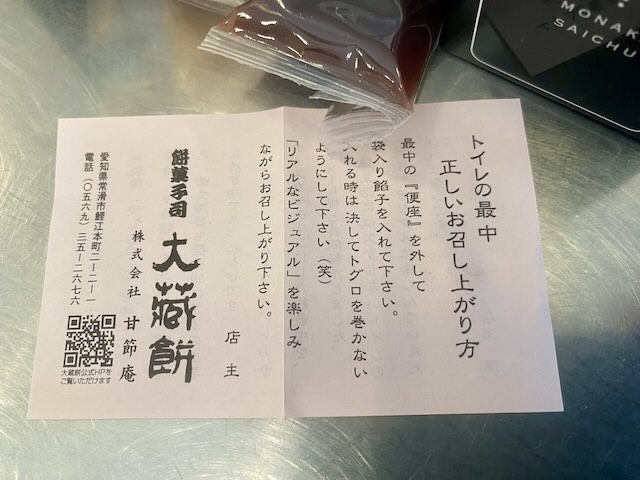 MONAK
SAICHU
トイレの最中
正しいお召し上がり方
最中の『便座』を外して
袋入り餡子を入れて下さい。
入れる時は決してトグロを巻かない
ようにして下さい（笑）
「リアルなビジュアル」を楽しみ
ながらお召し上がり下さい。
店主
餅菓子司
大蔵餅
株式会社 甘節庵
愛知県常滑市鯉江本町二-二-一
電話（〇五六九）三五-二六七六
大蔵餅公式HPを
ご覧いただけます